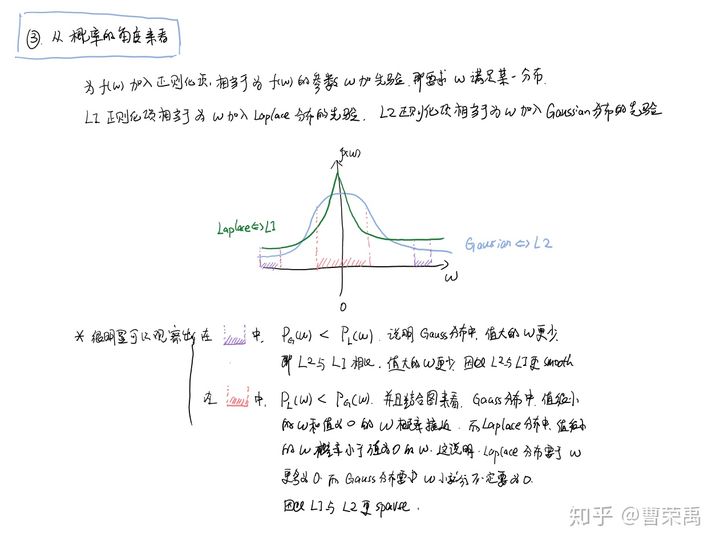 ③. 从概率的角度来看
为 f(w) 加入正则化项, 相当于为 f(w) 的参数 w 加先验, 即要求 w 满足某一分布.
L1 正则化项相当于为 w 加入 Laplace 分布的先验, L2 正则化项相当于为 w 加入 Gaussian 分布的先验
f(w)
Laplace⇔L1
Gaussian⇔L2
w
0
* 很明显可以观察出 在 中, P_G(w) < P_L(w). 说明 Gauss分布中, 值大的 w 更少
即 L2 与 L1 相比, 值大的 w 更少, 因此 L2 与 L1 更 smooth
在 中, P_L(w) < P_G(w). 并且结合图来看, Gauss 分布中, 值较小
的 w 和值为 0 的 w 概率接近. 而 Laplace 分布中, 值较小
的 w 概率小于值为 0 的 w. 这说明, Laplace 分布需于 w
更多为 0. 而 Gauss 分布要求 w 小 不一定要为 0.
因此 L1 与 L2 更 sparse.
知乎 @曹荣禹